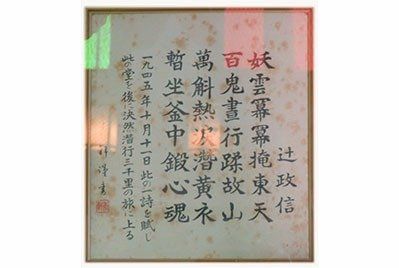 辻政信
妖雲冪冪掩東天
百鬼晝行蹂故山
萬斛熱涙潛黄衣
暫坐釜中鍛心魂
一九四五年十月十一日此の一詩を賦し
此の堂を後に決然潛行三千里の旅に上る